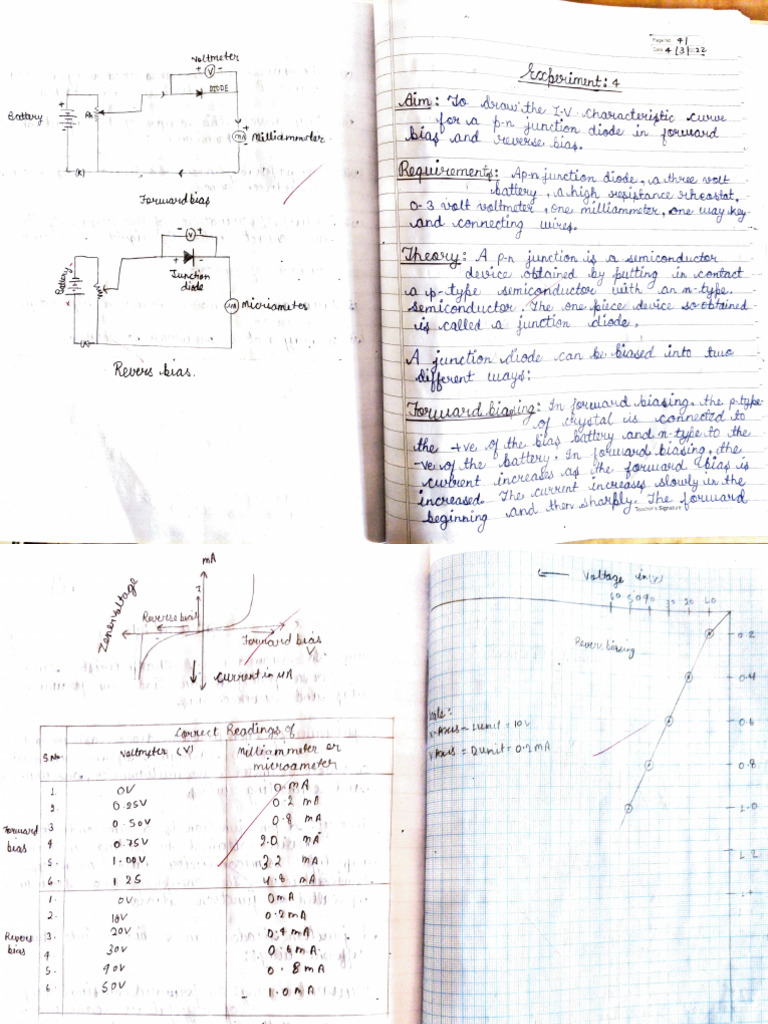 Voltmeter
+ V -
DIODE
Battery
+
Rh
mA Milliammeter
(K)
Forward bias
- V +
+ -
Junction
diode
Battery
Micriameter
(K)
Revers bias.
Page No. 41
Date 4 | 3 | 22
Experiment: 4
Aim: To draw the I-V characteristic curve
for a p-n junction diode in forward
bias and reverse bias.
Requirements: A p-n junction diode, a three volt
battery, a high resistance rheostat,
0-3 volt voltmeter, one milliammeter, one way key
and connecting wires.
Theory: A p-n junction is a semiconductor
device obtained by putting in contact
a p-type semiconductor with an n-type.
semiconductor. The one piece device so obtained
is called a junction diode.
A junction diode can be biased into two
different ways:
Forward biasing: In forward biasing, the p-type
of crystal is connected to
the +ve of the bias battery and n-type to the
-ve of the battery. In forward biasing, the
current increases as the forward bias is
increased. The current increases slowly in the
beginning and then sharply. The forward
Teacher's Signature
mA
I
Zener voltage
Reverse bias
Forward bias
V
Current in μA
Correct Readings of
S.No. Voltmeter (V) Milliammeter or
microameter
Forward
bias
1. 0V 0 mA
2. 0.25V 0.2 mA
3 0.50V 0.8 mA
4 0.75V 2.0 mA
5. 1.00V. 3.2 mA
6. 1.25 4.8 mA
Revers
bias
1. 0V 0mA
2. 10V 0.2mA
3. 20V 0.4 mA
4 30V 0.6 mA.
5. 40V 0.8 mA
6. 50V 1.0 mA
Voltage in (v)
60 50 40 30 20 10
Revers biasing
0.2
0.4
0.6
0.8
1.0
1.2
X-Axis = 1 unit = 10v
Y Axis = 1 unit = 0.2 mA